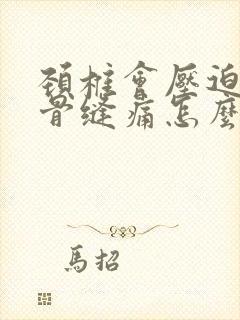 頚椎會壓迫
骨縫痛怎麼
馬招